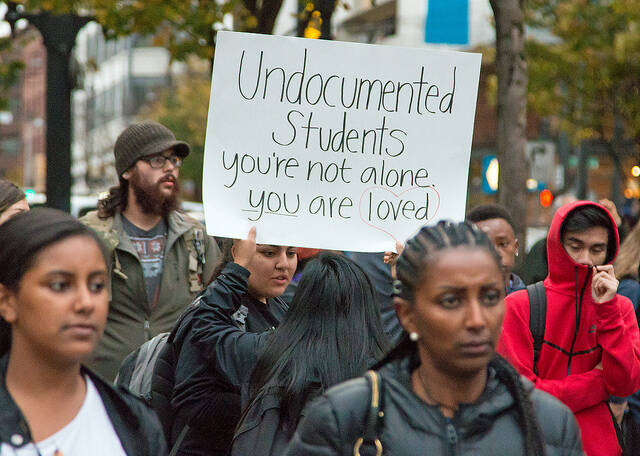 Undocumented
Students
you're not alone.
you are loved